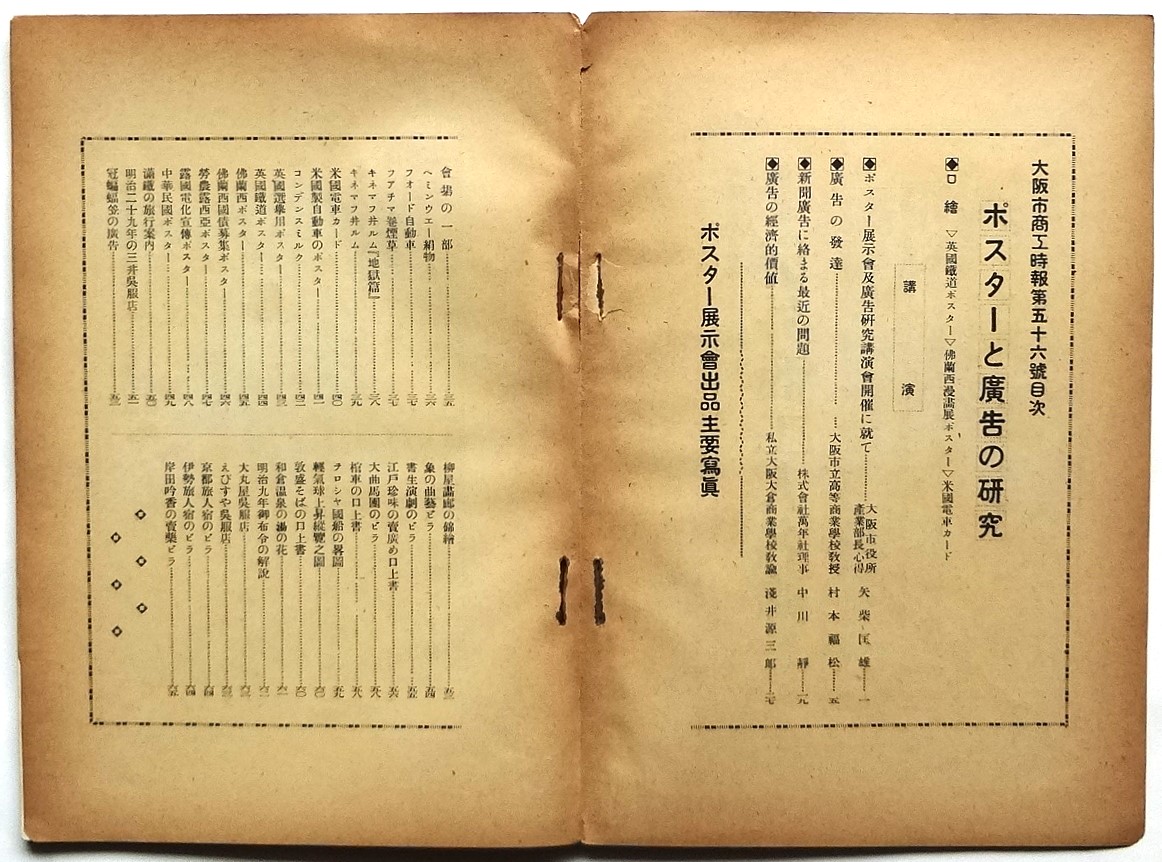 大阪市商工時報第五十六號目次
ポスターと廣告の研究
◆口繪 ▽英國鐵道ポスター▽佛蘭西漫畫展ポスター▽米國電車カード
講演
◆ポスター展示會及廣告研究講演會開催に就て……大阪市役所產業部長心得 矢柴匡雄……一
◆廣告の發達……大阪市立高等商業學校敎授 村本福松……五
◆新聞廣告に絡まる最近の問題……株式會社萬年社理事 中川靜……一九
◆廣告の經濟的價値……私立大阪大倉商業學校敎諭 淺井源三郎……二七
ポスター展示會出品主要寫眞
會場の一部……三五
ヘミンウエー絹物……三六
フオード自動車……三七
フアチマ卷煙草……三七
キネマフ井ルム……三八
キネマフ井ルム『地獄篇』……三九
米國電車カード……四〇
米國製自動車のポスター……四一
コンデンスミルク……四二
英國選擧用ポスター……四三
英國鐵道ポスター……四四
佛蘭西ポスター……四五
佛蘭西國債募集ポスター……四六
勞農露西亞ポスター……四七
露國電化宣傳ポスター……四八
中華民國ポスター……四九
滿鐵の旅行案内……五〇
明治二十九年の三井吳服店……五一
冠蝙蝠傘の廣告……五二
柳屋畵郎の錦繪……五三
象の曲藝ビラ……五四
書生演劇のビラ……五五
江戶珍味の賣廣め口上書……五六
大曲馬團のビラ……五八
棺車の口上書……五八
ヲロシヤ國船の畧圖……五九
輕氣球上昇縱覽之圖……六〇
敦盛そばの口上書……六〇
和倉溫泉の湯の花……六一
明治九年御布令の解說……六二
大丸屋吳服店……六三
えびすや吳服店……六三
京都旅人宿のビラ……六四
伊勢旅人宿のビラ……六四
岸田吟香の賣藥ビラ……六五